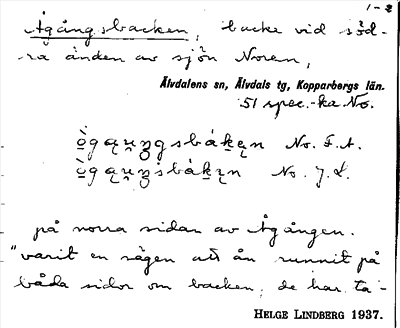 1-2
Ågångsbacken, backe vid söd-
ra änden av sjön Noren,
Älvdalens sn, Älvdals tg, Kopparbergs län.
51 spec.-ka. No.
No. F. A.
No. J. L.
på norra sidan av Ågången.
"varit en sägen att ån runnit på
båda sidor om backen, de har ta-
HELGE LINDBERG 1937.